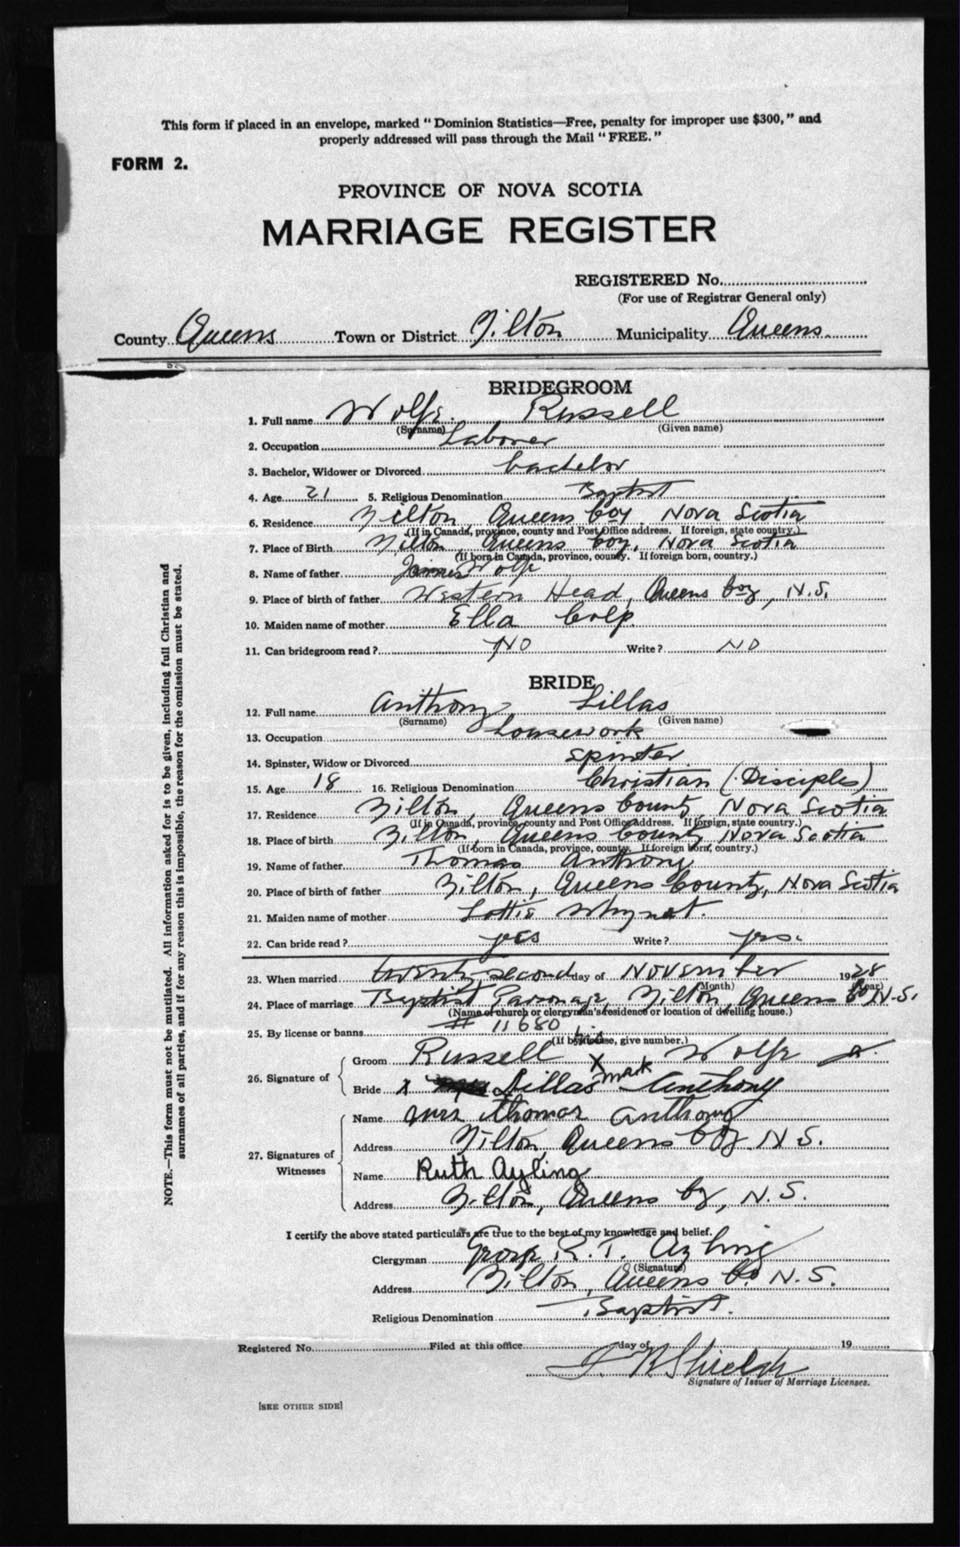 This form if placed in an envelope, marked "Dominion Statistics—Free, penalty for improper use $300," and
properly addressed will pass through the Mail "FREE."
FORM 2.
PROVINCE OF NOVA SCOTIA
MARRIAGE REGISTER
REGISTERED No.
(For use of Registrar General only)
County Queens Town or District Milton Municipality Queens
BRIDEGROOM
1. Full name Wolfe Russell
(Surname) (Given name)
2. Occupation Laborer
3. Bachelor, Widower or Divorced bachelor
4. Age 21 5. Religious Denomination Baptist
6. Residence Milton, Queens Coy, Nova Scotia
(If in Canada, province, county and Post Office address. If foreign, state country.)
7. Place of Birth Milton Queens Coy, Nova Scotia
(If born in Canada, province, county. If foreign born, country.)
8. Name of father James Wolfe
9. Place of birth of father Western Head, Queens Coy, N.S.
10. Maiden name of mother Ella Colp
11. Can bridegroom read? NO Write? NO
BRIDE
12. Full name Anthony Lillas
(Surname) (Given name)
13. Occupation housework
14. Spinster, Widow or Divorced spinster
15. Age 18 16. Religious Denomination Christian (Disciples)
17. Residence Milton, Queens County, Nova Scotia
(If in Canada, province, county and Post Office Address. If foreign, state country.)
18. Place of birth Milton, Queens County, Nova Scotia
(If born in Canada, province, county. If foreign born, country.)
19. Name of father Thomas Anthony
20. Place of birth of father Milton, Queens County, Nova Scotia
21. Maiden name of mother Lottie Whynot.
22. Can bride read? yes Write? yes.
23. When married twenty second day of November 1928
(Month) (Year)
24. Place of marriage Baptist Parsonage, Milton, Queens Co N.S.
(Name of church or clergyman's residence or location of dwelling house.)
25. By license or banns # 11680
(If by license, give number.)
his
26. Signature of Groom Russell X Wolfe
mark
Bride x Lillas Anthony
27. Signatures of Witnesses Name Mrs Thomas Anthony
Address Milton, Queens Coy N.S.
Name Ruth Ayling
Address Milton, Queens Coy, N.S.
I certify the above stated particulars are true to the best of my knowledge and belief.
Clergyman George R. T. Ayling
(Signature)
Address Milton, Queens Co. N.S.
Religious Denomination Baptist.
Registered No. Filed at this office day of 19
Shields
Signature of Issuer of Marriage Licenses.
[SEE OTHER SIDE]
NOTE.—This form must not be mutilated. All information asked for is to be given, including full Christian and
surnames of all parties, and if for any reason this is impossible, the reason for the omission must be stated.